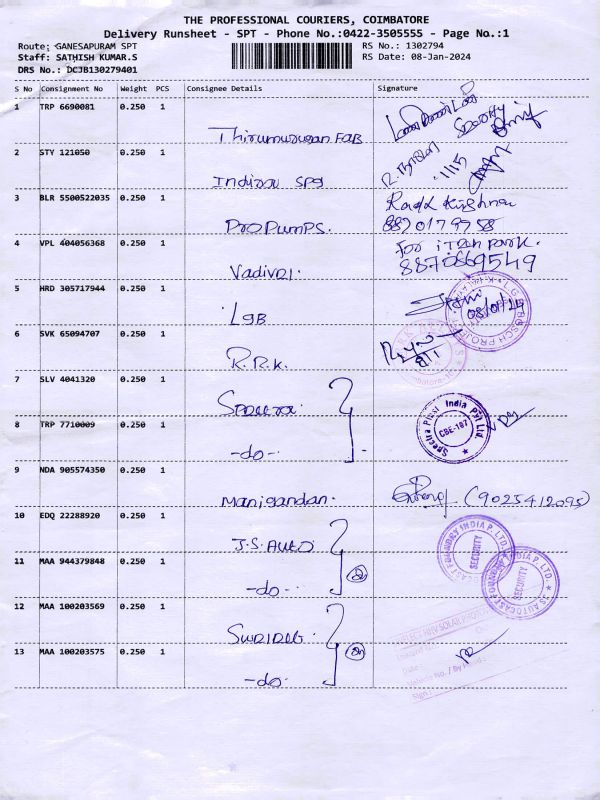 THE PROFESSIONAL COURIERS, COIMBATORE
Delivery Runsheet - SPT - Phone No.:0422-3505555 - Page No.:1
Route: GANESAPURAM SPT RS No.: 1302794
Staff: SATHISH KUMAR.S RS Date: 08-Jan-2024
DRS No.: DCJB130279401
S No Consignment No Weight PCS Consignee Details Signature
1 TRP 6690081 0.250 1
Thirumurugan Fab
2 STY 121050 0.250 1
Indira spg
3 BLR 5500522035 0.250 1 Radha Krishna
PROPUMPS. 8870179758
4 VPL 404056368 0.250 1 for iTech park.
Vadivel. 8870669549
5 HRD 305717944 0.250 1
LGB 08/01/24
6 SVK 65094707 0.250 1
R.R.K.
7 SLV 4041320 0.250 1
Spectra.
8 TRP 7710009 0.250 1 Spectra Plast India Pvt Ltd.
CBE-107
-do-
9 NDA 905574350 0.250 1
Manigandan. (9025412095)
10 EDQ 22288920 0.250 1
J.S.AUTO
11 MAA 944379848 0.250 1 SECURITY
-do- JS AUTOCAST FOUNDRY INDIA P. LTD.
SECURITY
12 MAA 100203569 0.250 1
13 MAA 100203575 0.250 1
-do-